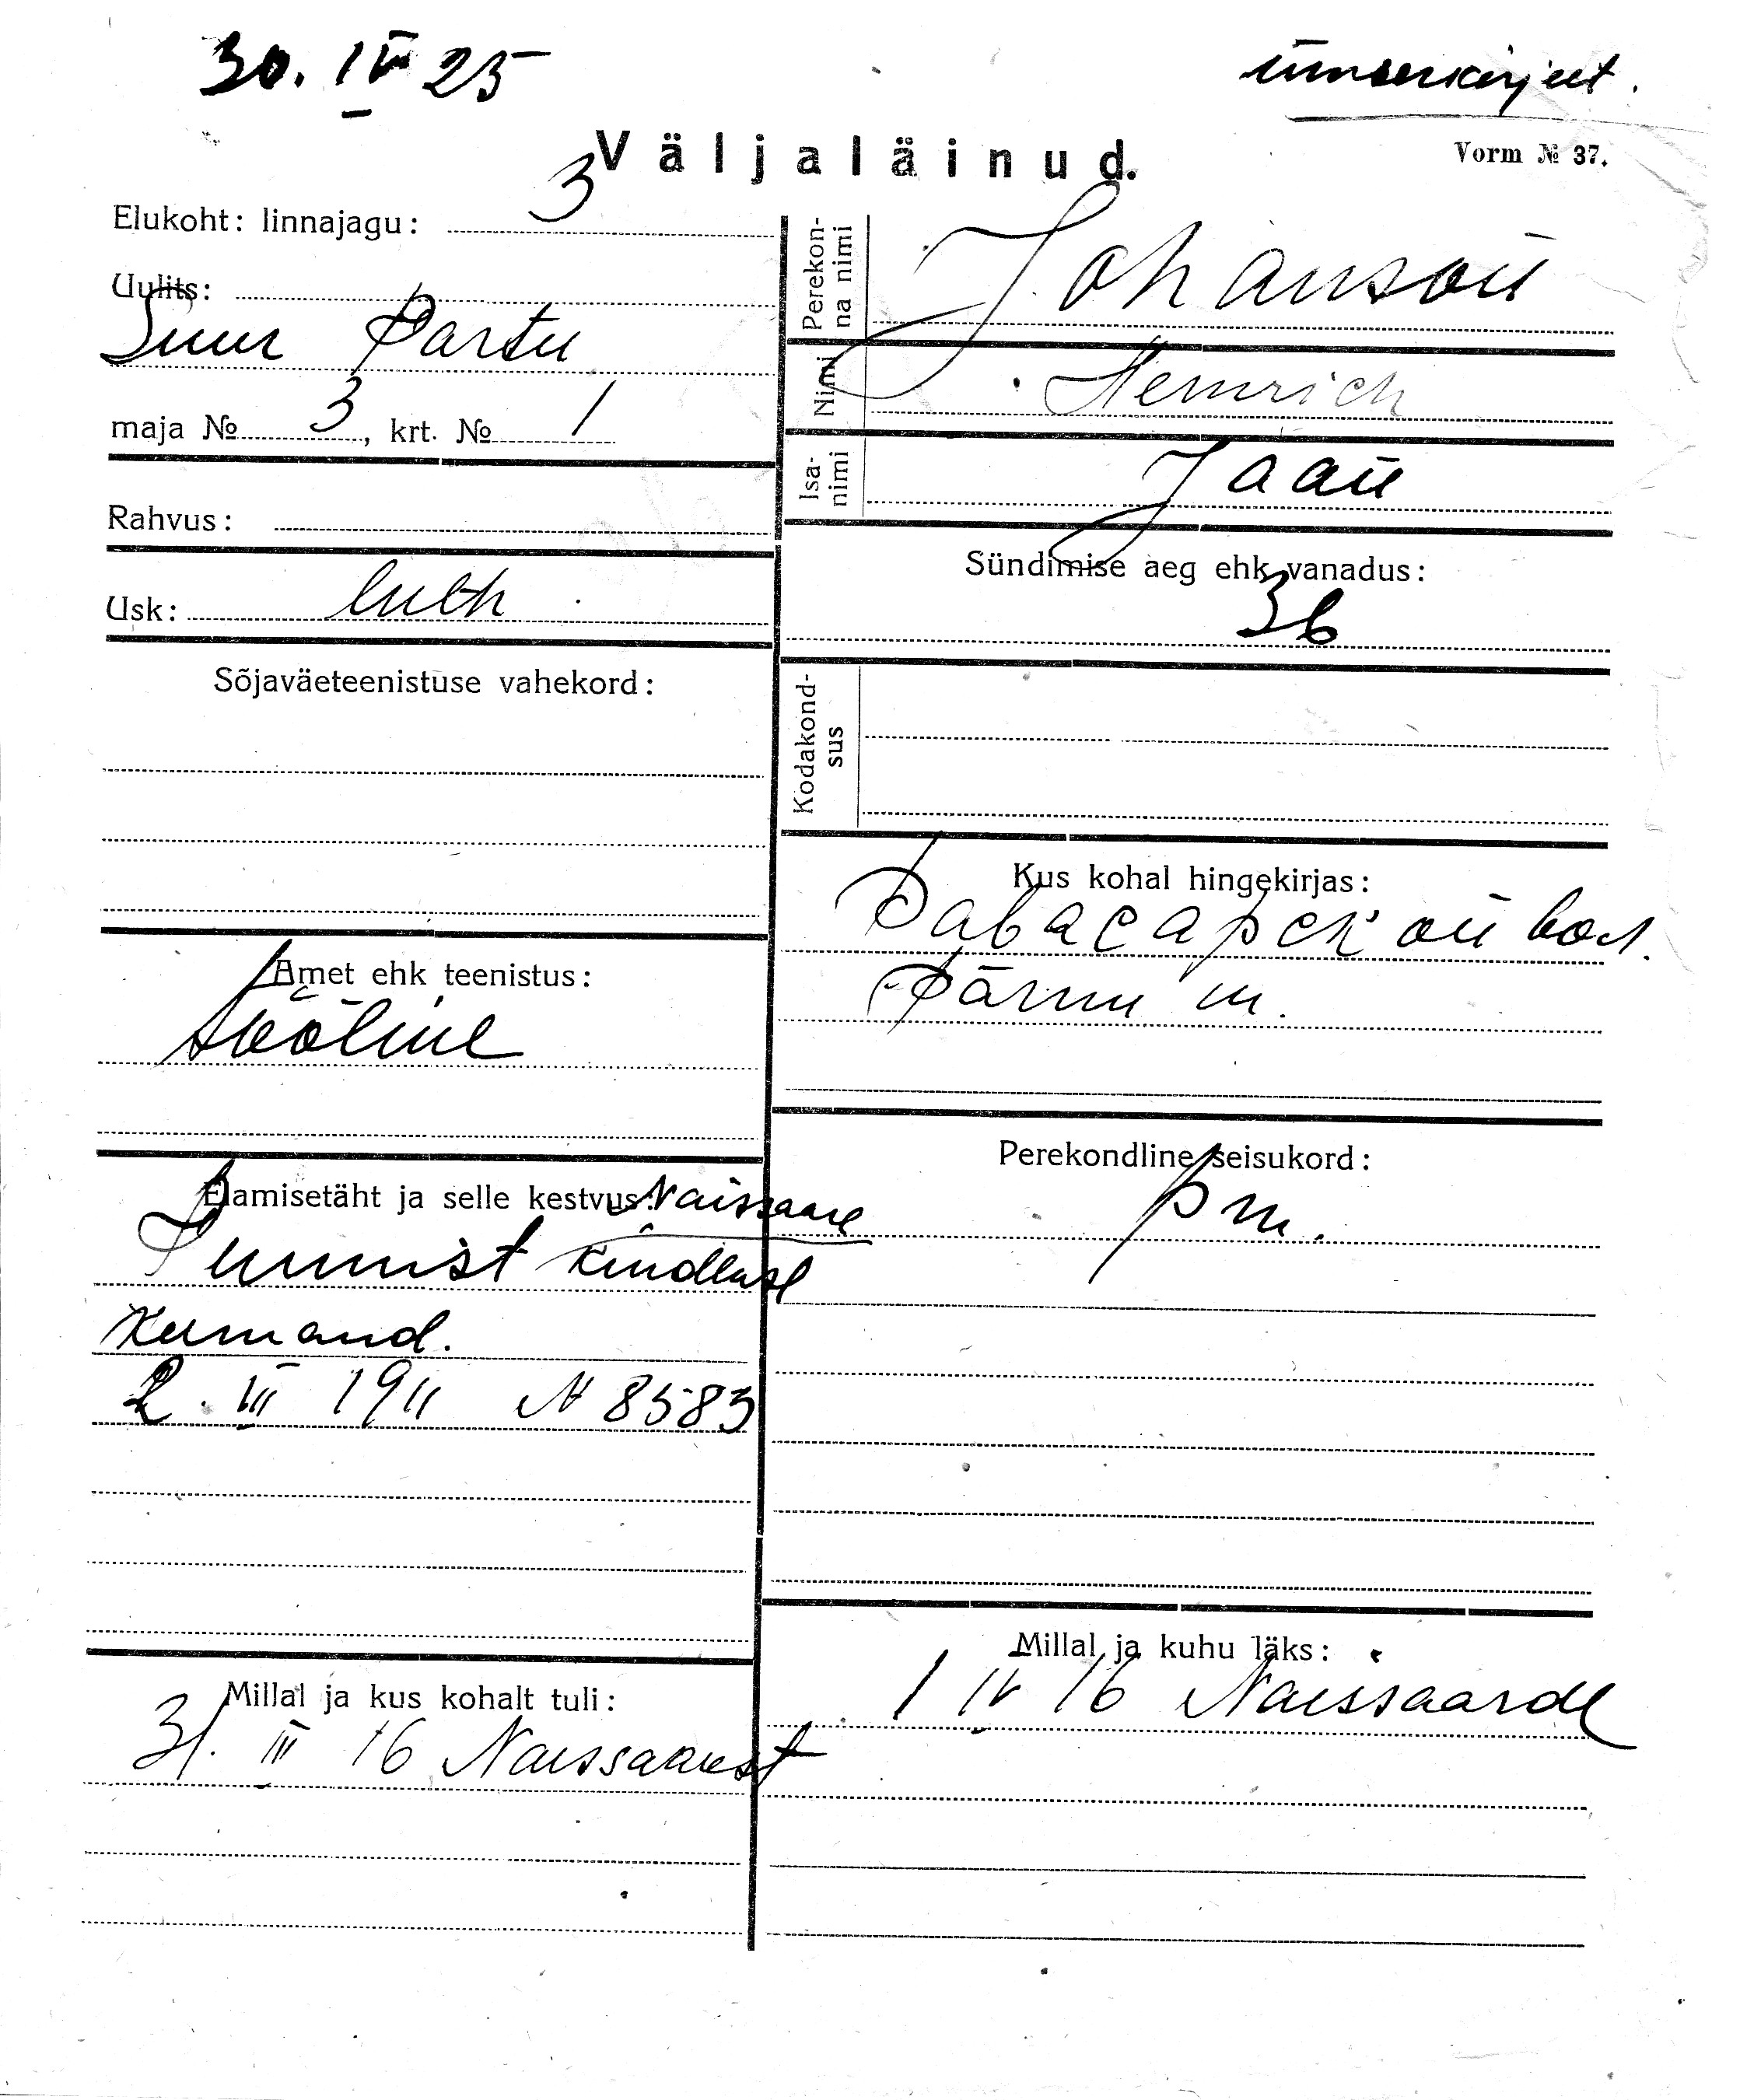 30. IV 25
ümberkirjut.
Väljaläinud.
Vorm № 37.
Elukoht: linnajagu: 3
Uulits:
Suur Partu
maja № 3, krt. № 1
Rahvus:
Usk: luth
Sõjaväeteenistuse vahekord:
Amet ehk teenistus:
tööline
Elamisetäht ja selle kestvus: Naissaare
Tunnist kindluse
Kumand.
2. III 1911 N 8583
Millal ja kus kohalt tuli:
31. III 16 Naissaarest
Perekonna nimi Johanson
Nimi Heinrich
Isanimi Jaan
Sündimise aeg ehk vanadus:
36
Kodakondsus
Kus kohal hingekirjas:
вол.
Pärnu m.
Perekondline seisukord:
pm.
Millal ja kuhu läks:
1 IV 16 Naissaarde